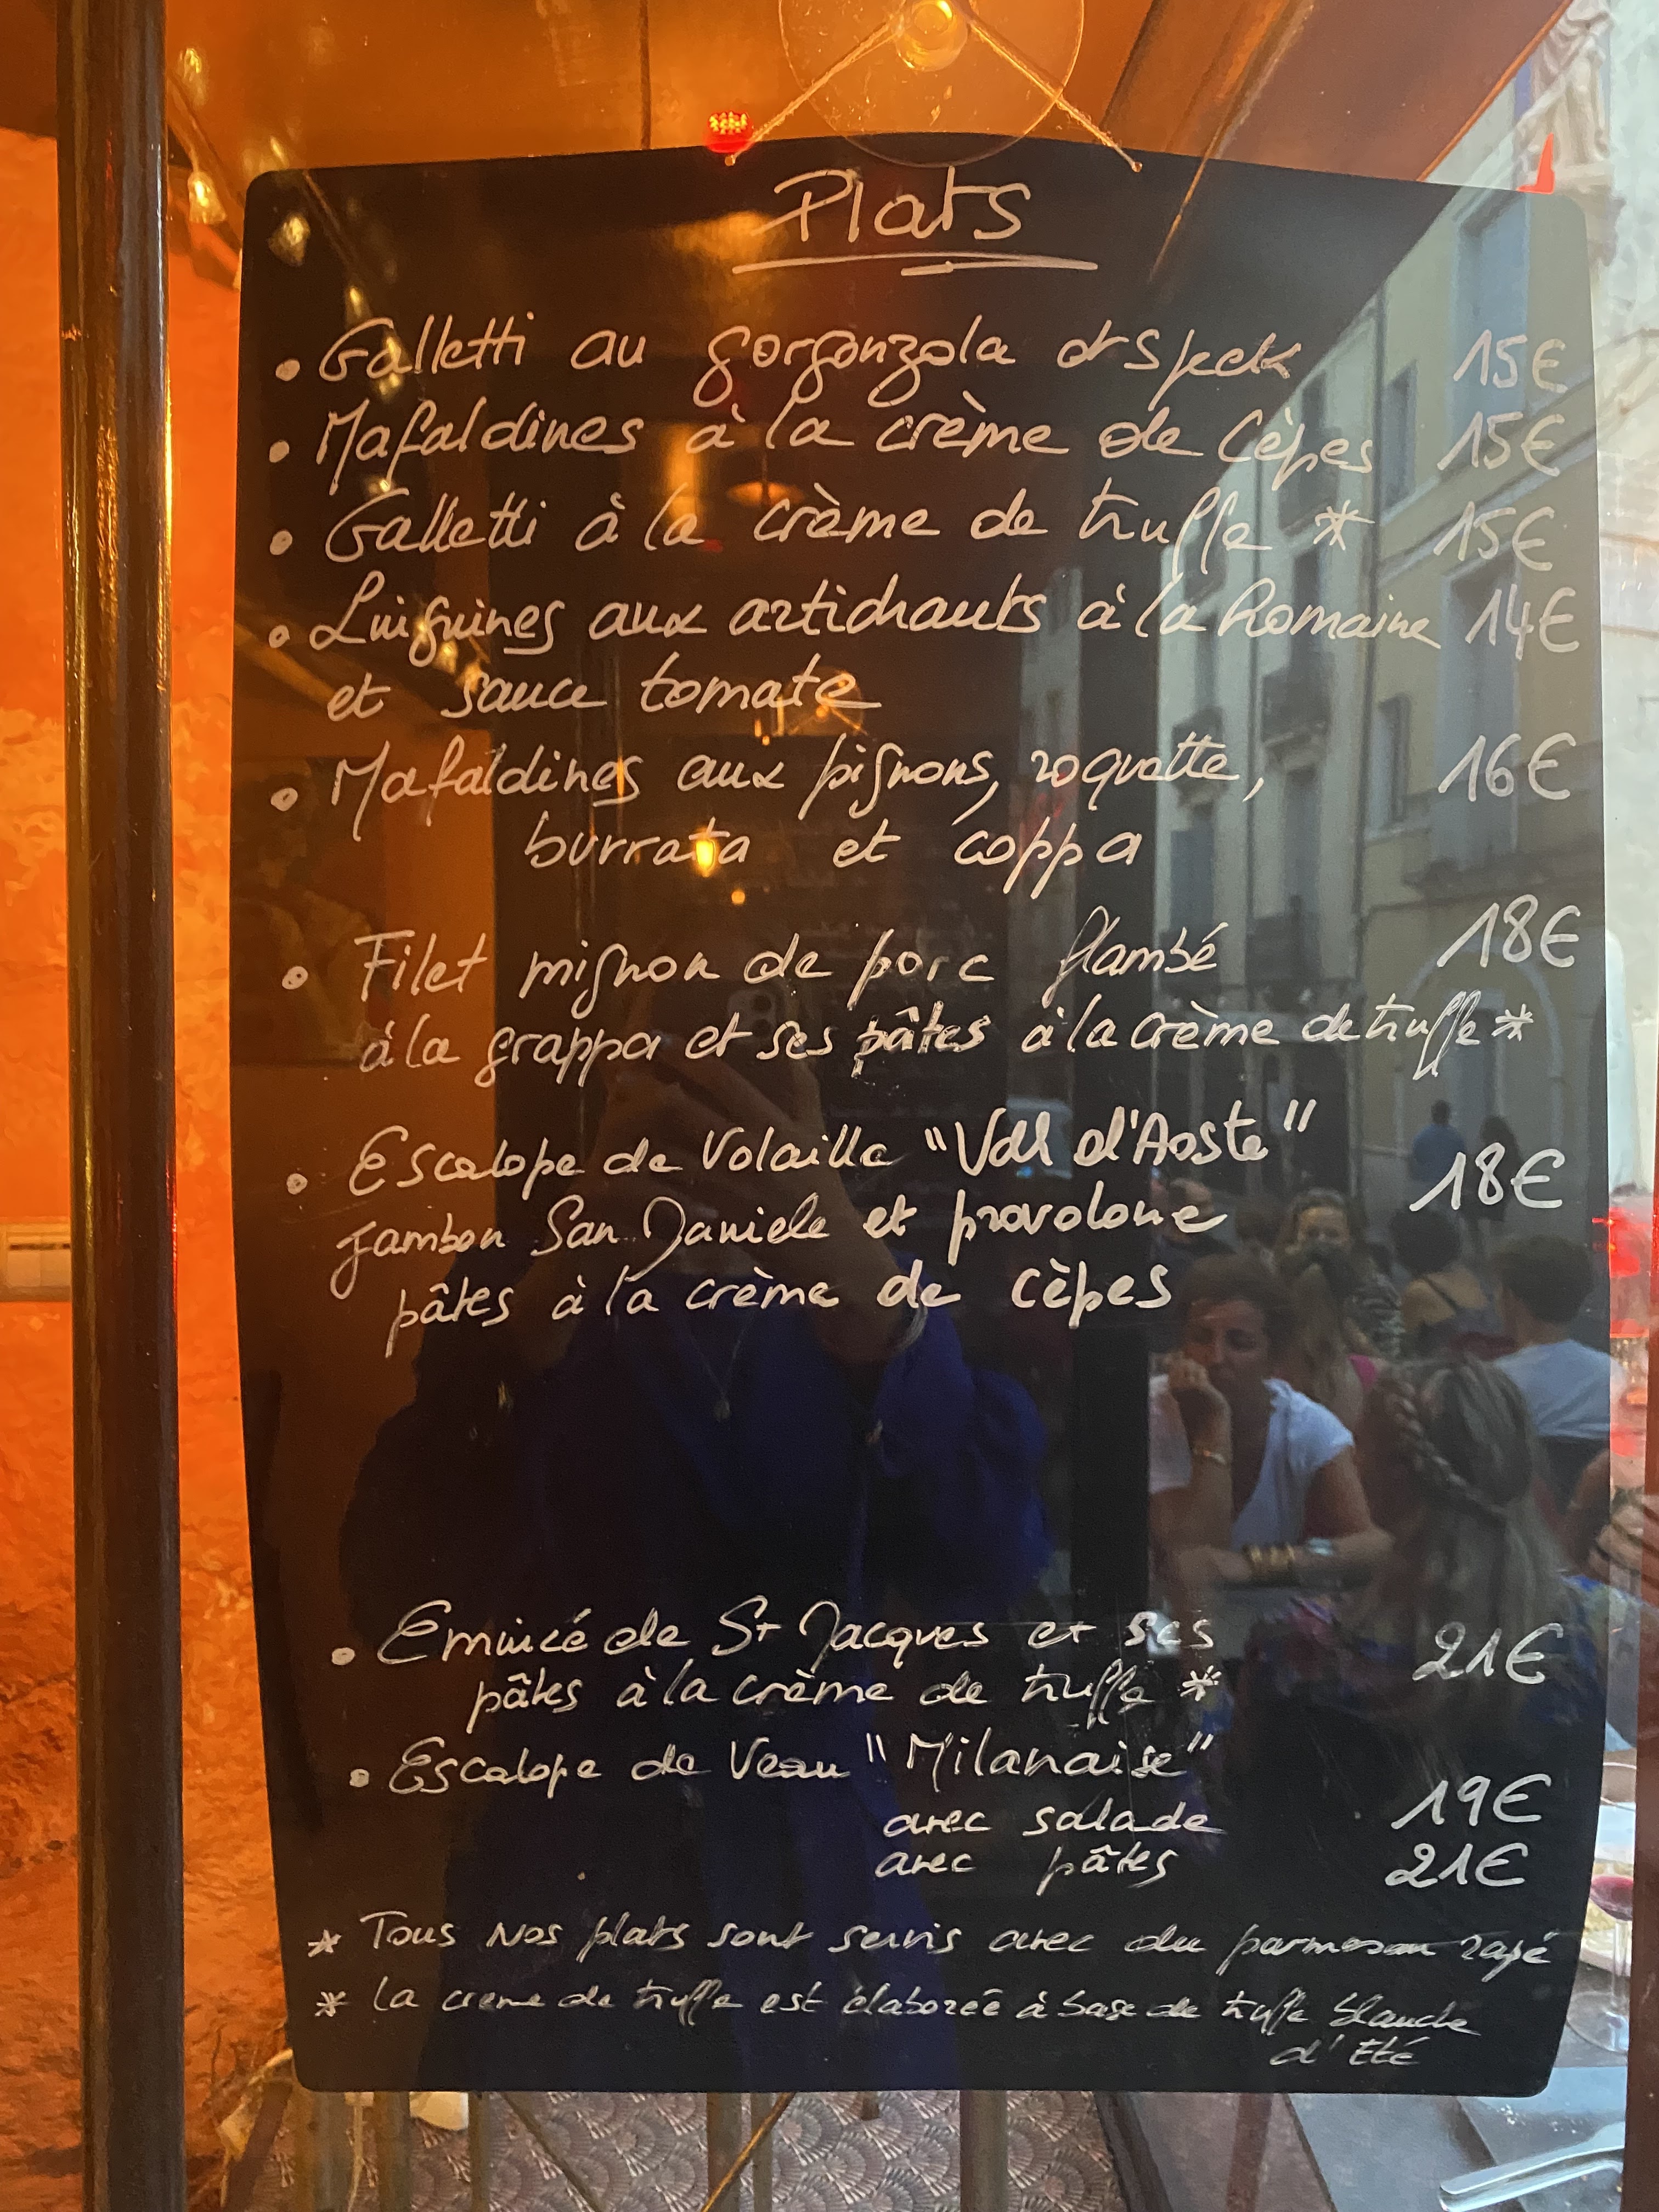 Plats
• Galletti au gorgonzola et speck 15€
• Mafaldines à la crème de Cèpes 15€
• Galletti à la crème de truffe * 15€
• Linguines aux artichauts à la Romaine 14€
et sauce tomate
• Mafaldines aux pignons, roquette, 16€
burrata et coppa
• Filet mignon de porc flambé 18€
à la grappa et ses pâtes à la crème de truffe *
• Escalope de Volaille "Val d'Aoste"
jambon San Daniele et provolone 18€
pâtes à la crème de cèpes
• Emincé de St Jacques et ses 21€
pâtes à la crème de truffe *
• Escalope de Veau "Milanaise"
avec salade 19€
avec pâtes 21€
* Tous nos plats sont servis avec du parmesan rapé
* La creme de truffe est élaborée à base de truffe blanche
d'Eté